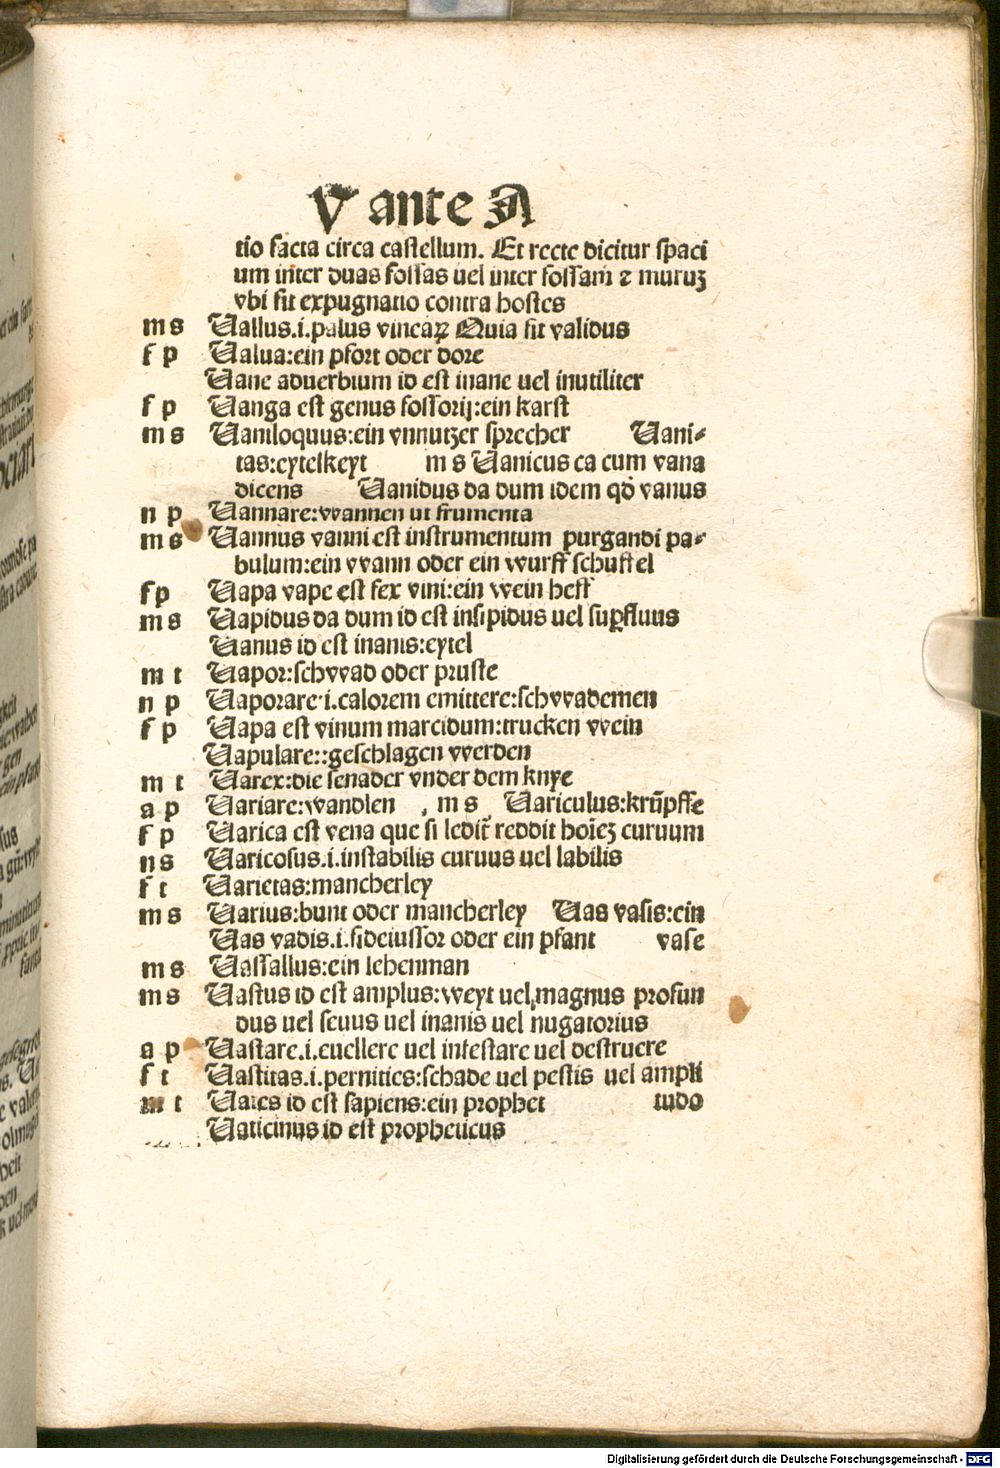 V ante A
tio facta circa castellum. Et recte dicitur spaci
um inter duas fossas uel inter fossam ⁊ muruꝫ
vbi fit expugnatio contra hostes
m s Uallus.i.palus vineaꝝ Quia fit validus
f p Ualua:ein pfort oder dore
Uane aduerbium id est inane uel inutiliter
f p Uanga est genus fossorij:ein karst
m s Uaniloquus:ein vnnutzer sprecher Uani-
tas:eytelkeyt m s Uanicus ca cum vana
dicens Uanidus da dum idem qď vanus
n p Uannare:wannen ut frumenta
m s Uannus vanni est instrumentum purgandi pa-
bulum:ein wann oder ein wurff schuffel
f p Uapa vape est fex vini:ein wein heff
m s Uapidus da dum id est insipidus uel suꝑfluus
Uanus id est inanis:eytel
m t Uapor:schwad oder pruste
n p Uaporare.i.calorem emittere:schwademen
f p Uapa est vinum marcidum:trucken wein
Uapulare::geschlagen werden
m t Uarex:die senader vnder dem knye
a p Uariare:wandlen , m s Uariculus:krũpffe
f p Uarica est vena que si ledit̃ reddit hoı̃eꝫ curuum
n s Uaricosus.i.instabilis curuus uel labilis
f t Uarietas:mancherley
m s Uarius:bunt oder mancherley Uas vasis:ein
Uas vadis.i.fideiussor oder ein pfant vase
m s Uassallus:ein lehenman
m s Uastus id est amplus:weyt uel magnus profun
dus uel seuus uel inanis uel nugatorius
a p Uastare.i.euellere uel infestare uel destruere
f t Uastitas.i.pernities:schade uel pestis uel ampli
m t Uates id est sapiens:ein prophet tudo
Uaticinus id est propheticus
Digitalisierung gefördert durch die Deutsche Forschungsgemeinschaft - DFG